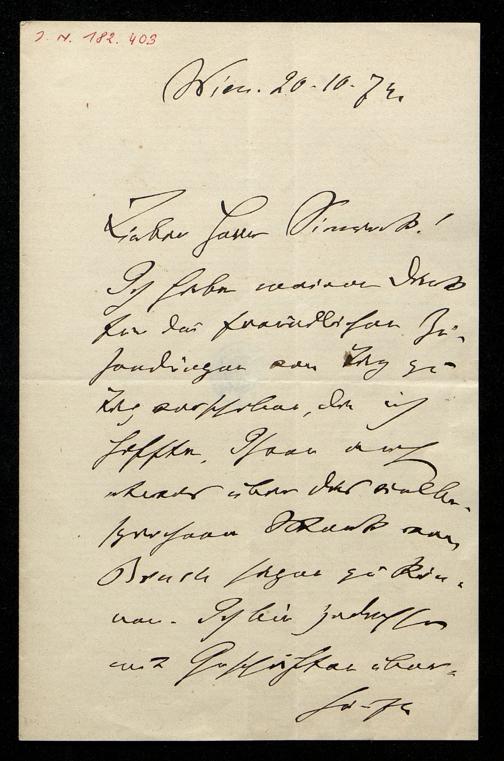 J. N. 182.403
Wien. 20.10.74.
Lieber Herr Simrock!
Ich habe meinen Dank
für die freundlichen Zu-
sendungen von Tag zu
Tag verschoben, da ich
hoffte, Ihnen auch
etwas über das vielbe-
sprochene Werk von
Bruch sagen zu kön-
nen. Ich bin jedoch so
mit Geschäften über-